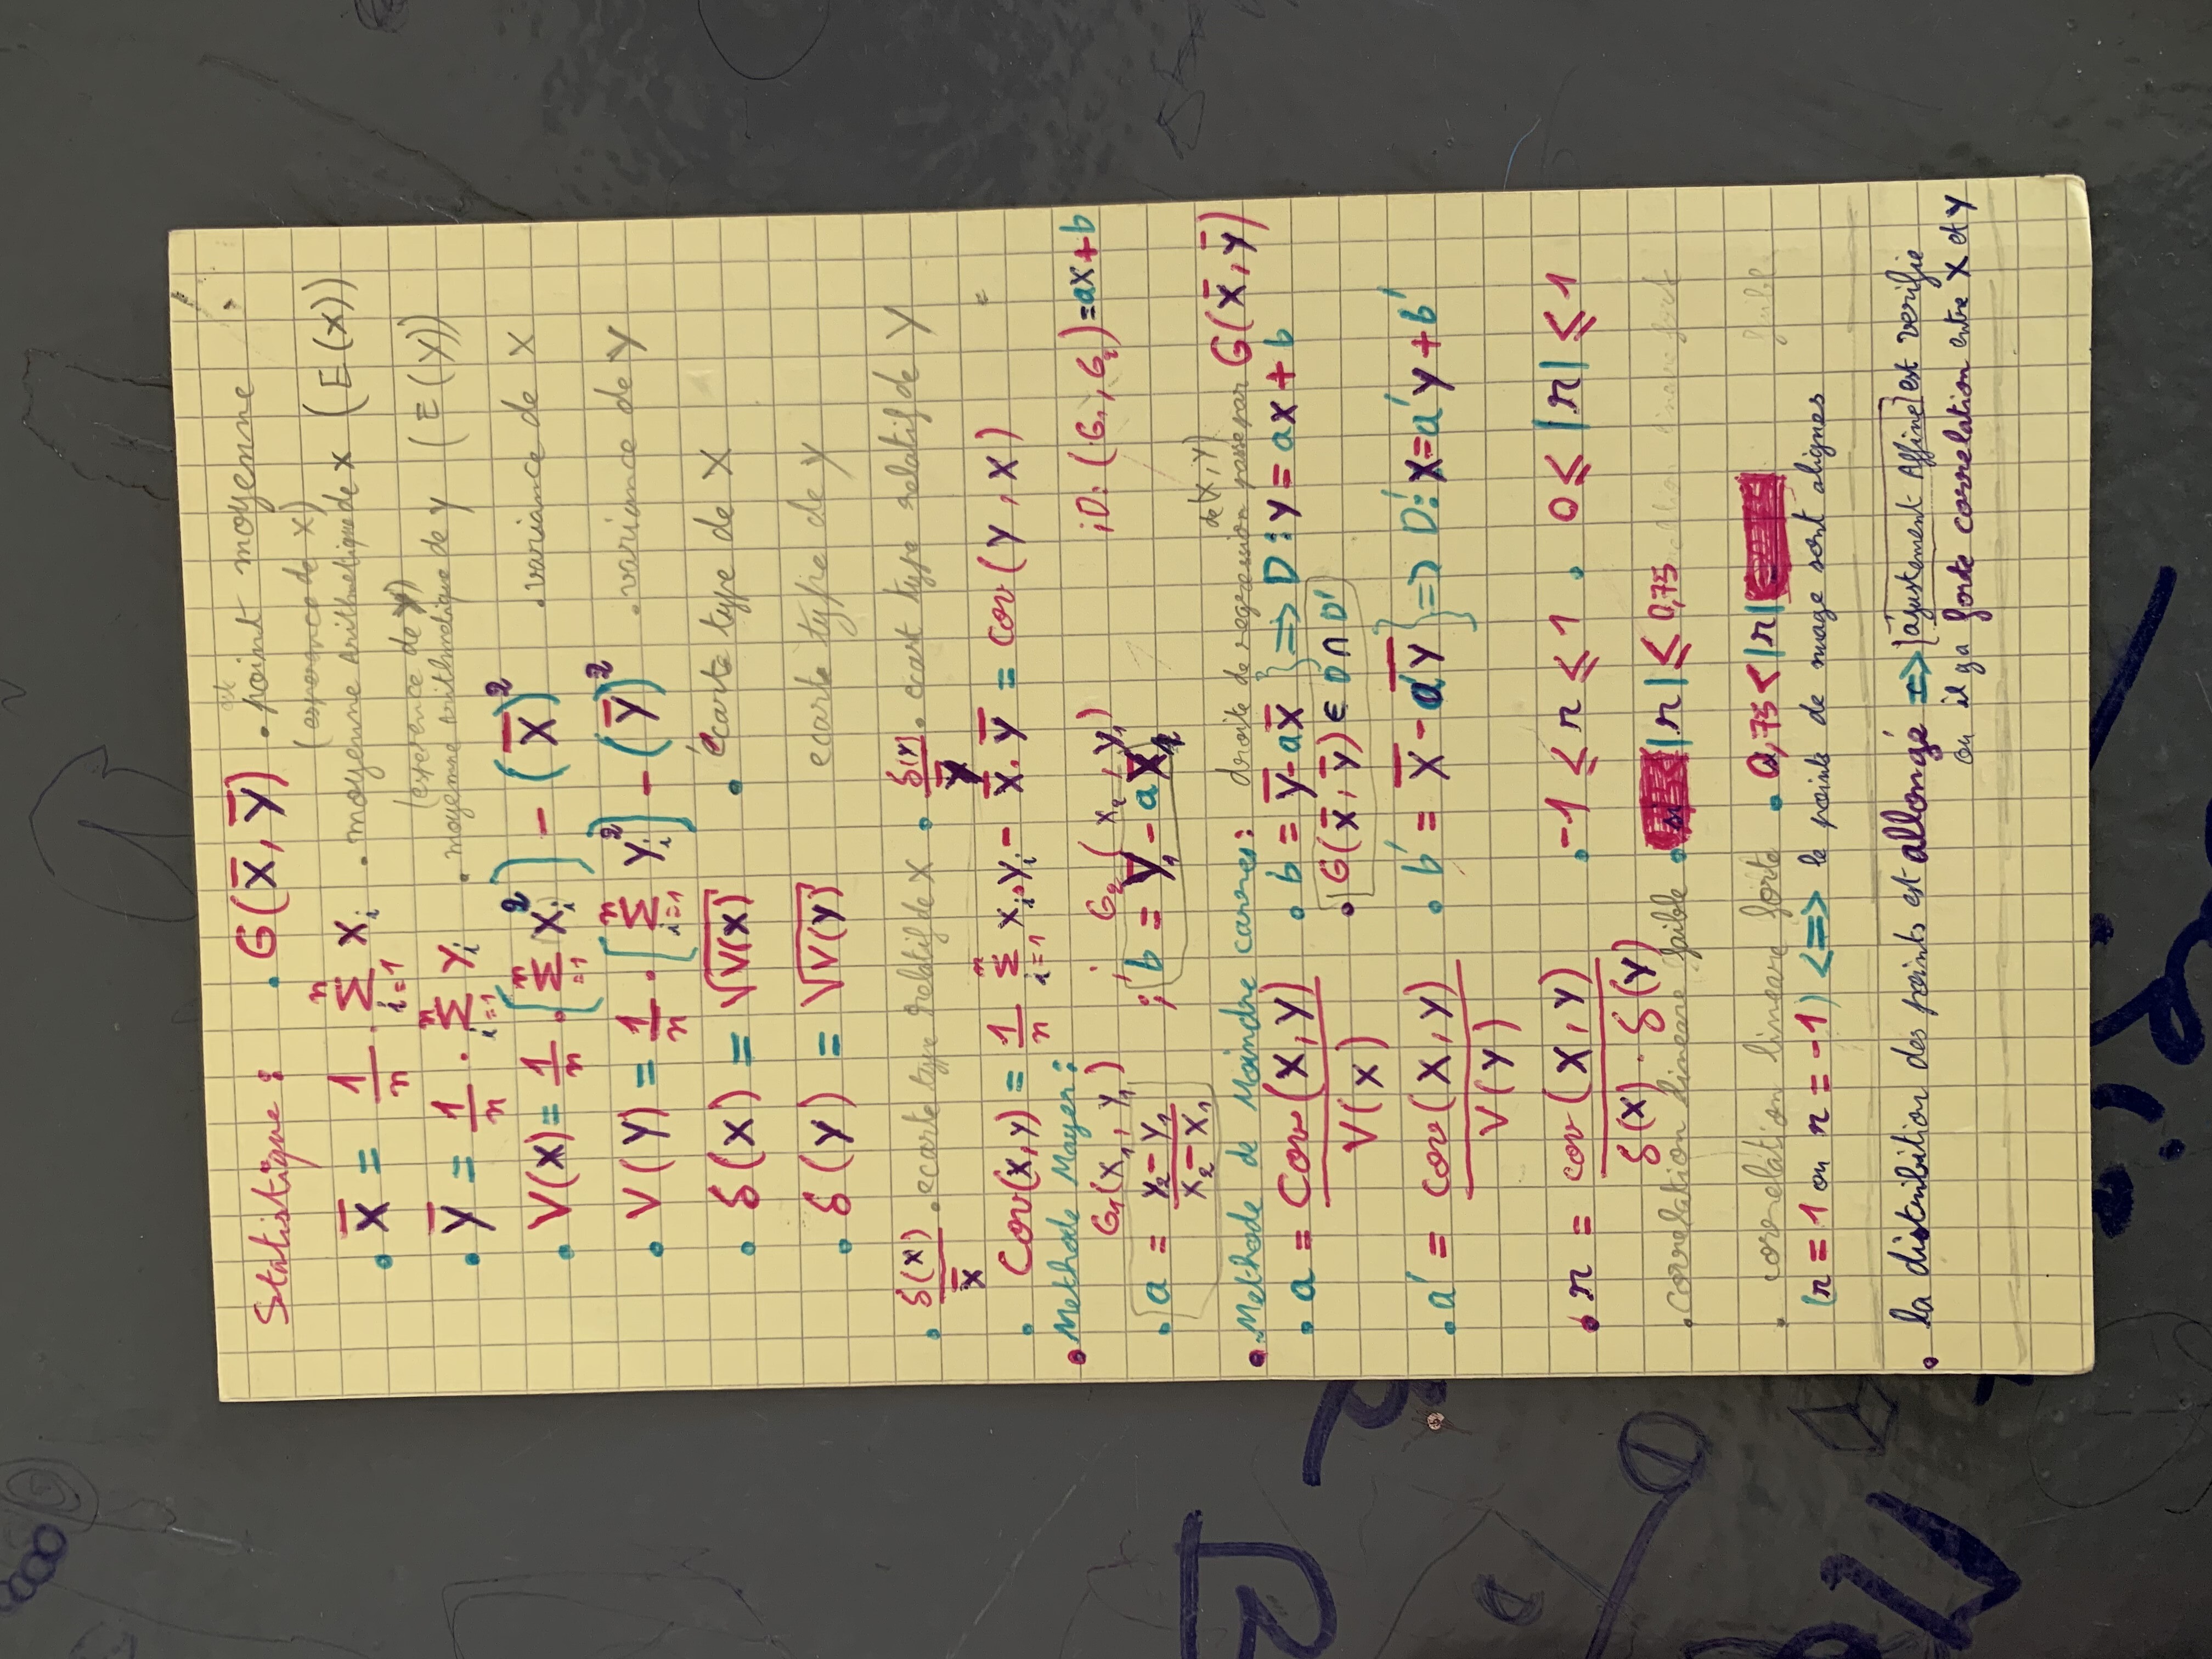 Statistique : . G(X̅, Y̅) . point moyenne
(esperence de X)
. X̅ = 1/n . Σ_{i=1}^{n} Xi . moyenne Arithmetique de X (E(X))
(esperence de Y)
. Y̅ = 1/n . Σ_{i=1}^{n} Yi . moyenne Arithmetique de Y (E(Y))
. V(X) = 1/n . [Σ_{=1}^{n} Xi²] - (X̅)² . variance de X
. V(Y) = 1/n . [Σ_{i=1}^{n} Yi²] - (Y̅)² . variance de Y
. δ(X) = √V(X) . écarte type de X
. δ(Y) = √V(Y) ecarte type de Y
. δ(X)/X̅ . ecarte type relatif de X . δ(Y)/Y̅ . ecart type relatif de Y
. Cov(X,Y) = 1/n Σ_{i=1}^{n} Xi.Yi - X̅.Y̅ = cov(Y,X)
. Methode Mayer :
G₁(X₁, Y₁) ; G₂(X₂, Y₁) ; D: (G₁, G₂) = ax + b
. a = (Y₂ - Y₁)/(X₂ - X₁) ; b = Y̅₁ - a X̅₁
. Methode de Moindre carres : droite de regression de (X,Y) passe par G(X̅, Y̅)
. a = Cov(X,Y)/V(X) . b = Y̅ - aX̅ } => D : y = ax + b
. G(X̅, Y̅) ∈ D ∩ D'
. a' = cov(X,Y)/V(Y) . b' = X̅ - a'Y̅ } => D': X = a'y + b'
. r = cov(X,Y)/(δ(X) . δ(Y)) . -1 ⩽ r ⩽ 1 . 0 ⩽ |r| ⩽ 1
. correlation lineare faible . |r| ⩽ 0,75
. correlation lineare forte . 0,75 < |r|
(r = 1 ou r = -1) <=> le points de nuage sont alignes
. la distribition des points est allongé => [ajustement Affine] est verifie
ou il ya forte correlation entre X et Y